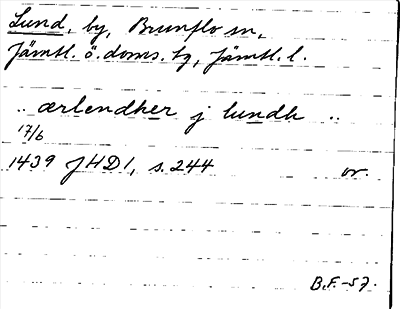 Lund, by, Brunflo sn,
Jämtl. ö. doms. tg, Jämtl. l.
.. ærlendher j lundh ..
17/6
1439 JHD1, s. 244 or.
B.F.-57.